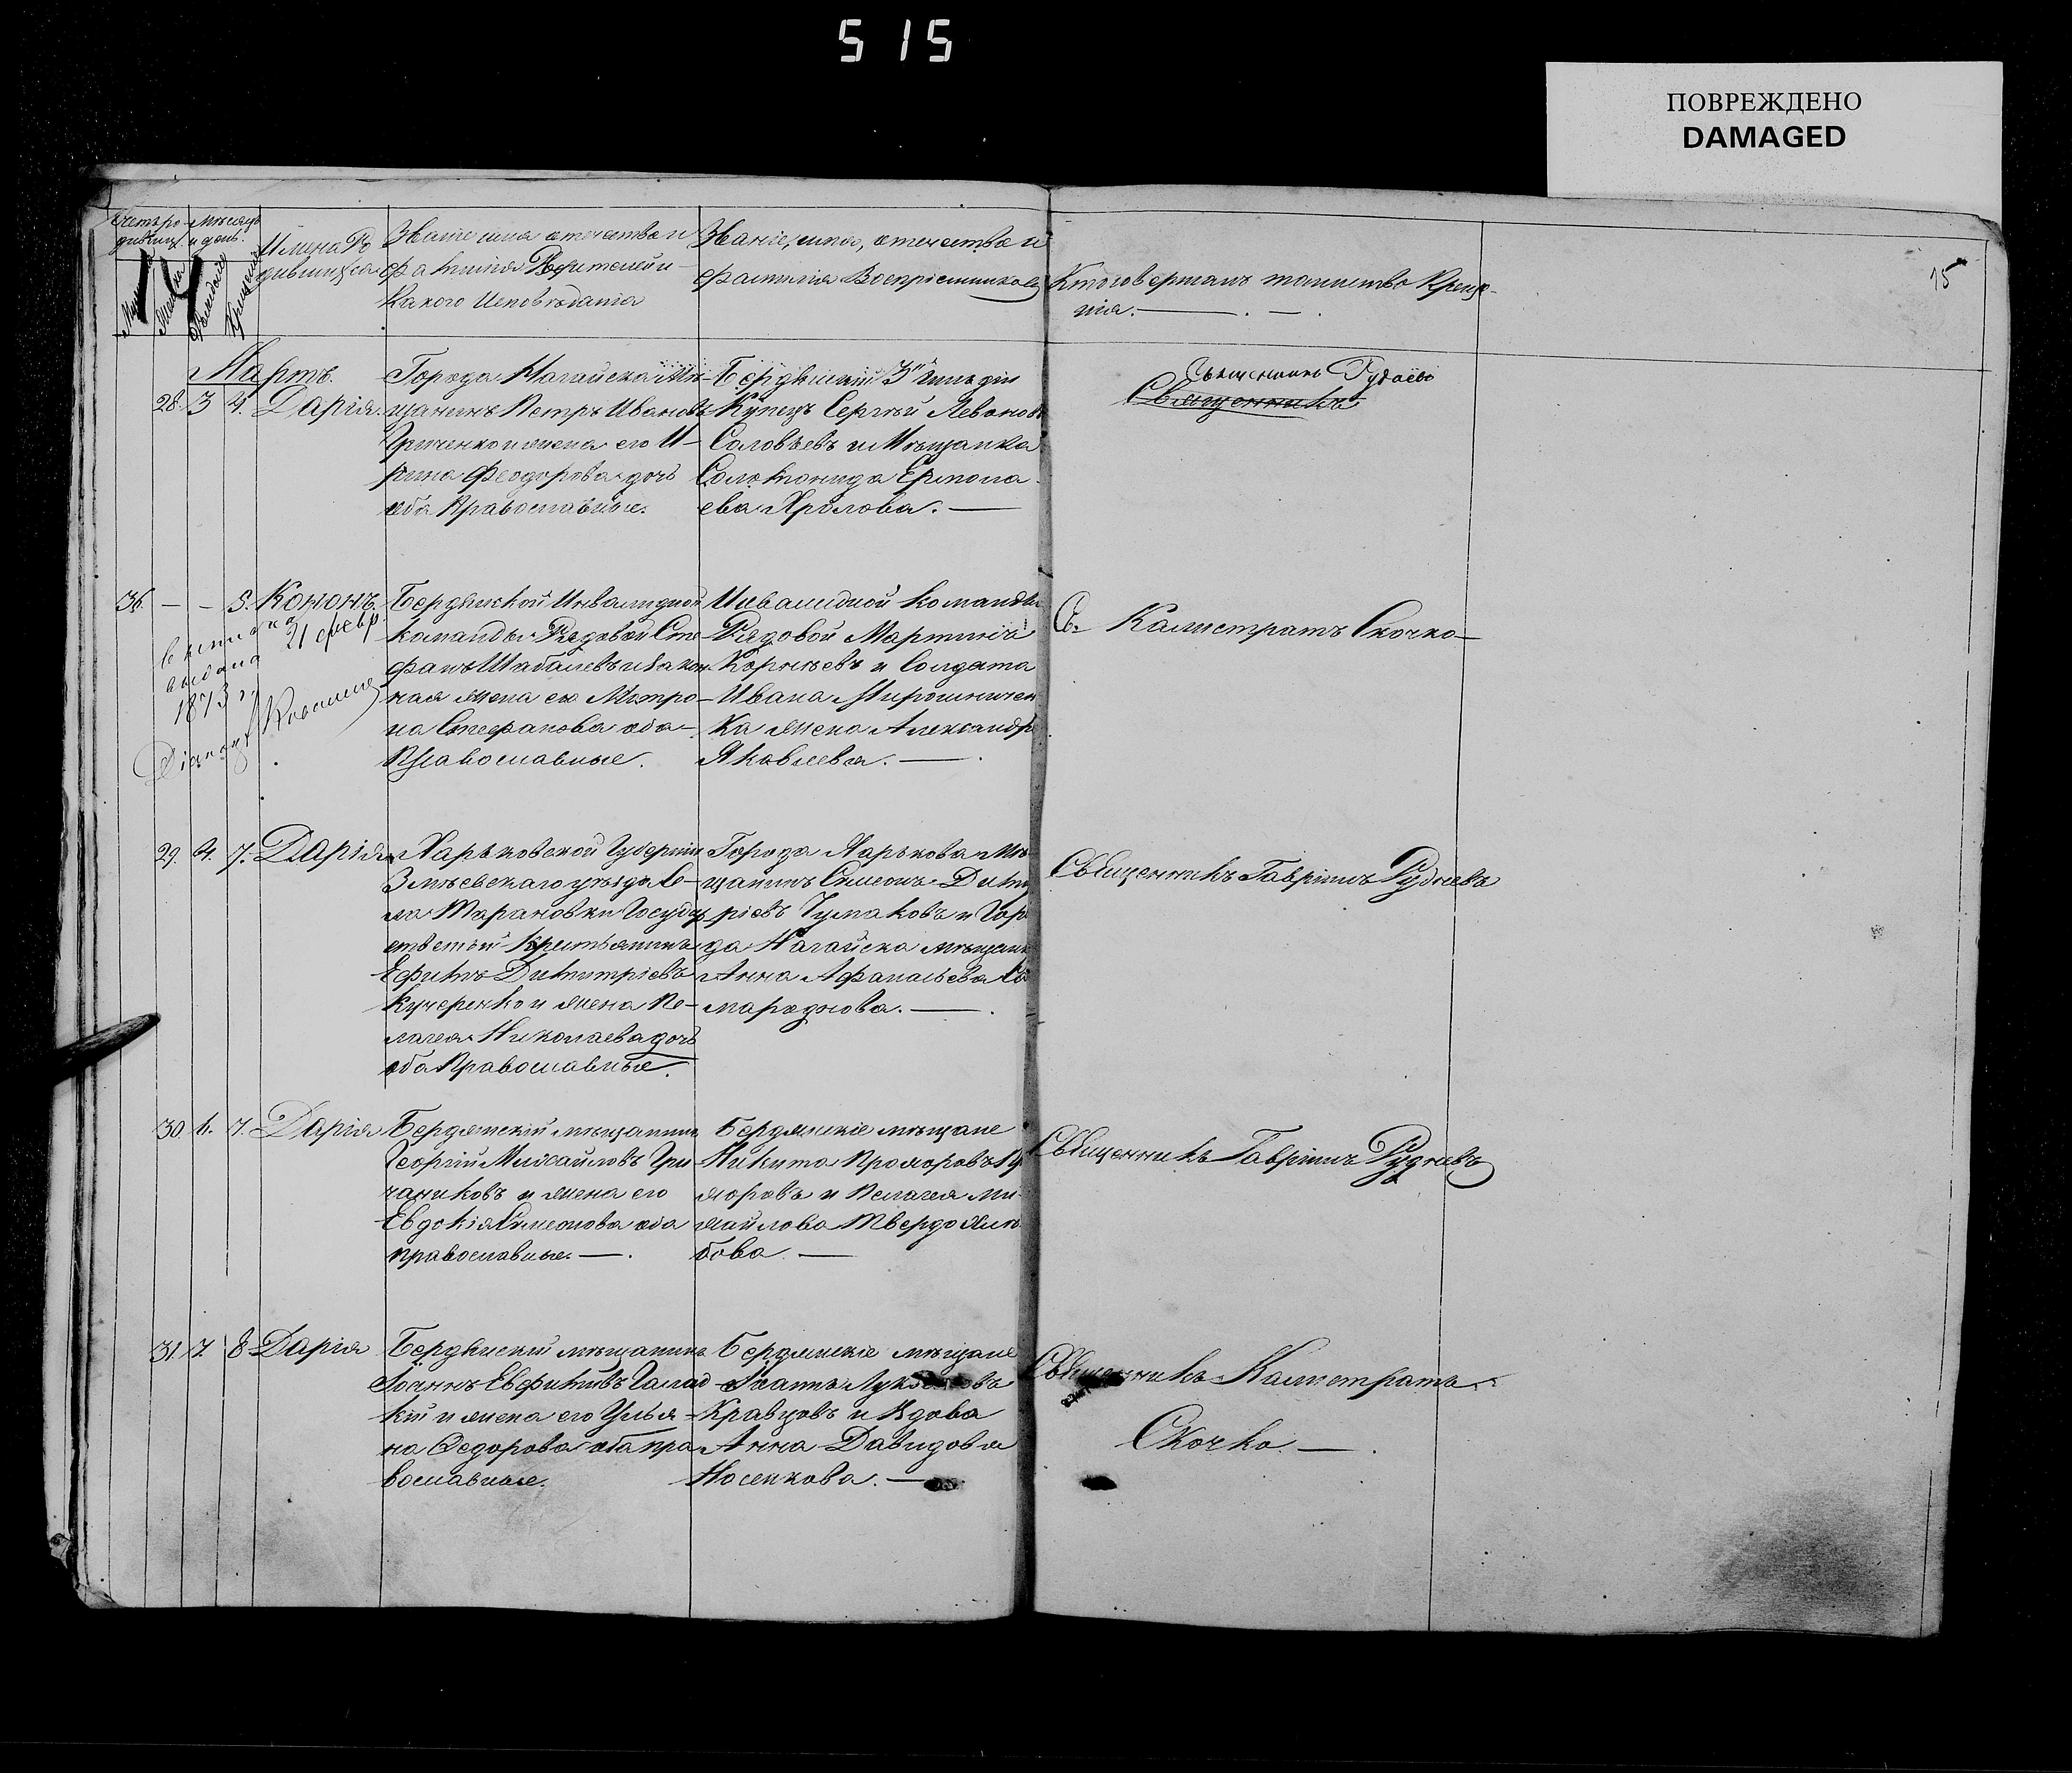 515
ПОВРЕЖДЕНО
DAMAGED
15
Счетъ ро-
дившихся
Мѣсяцъ
и день.
Рожденія
Крещенія
Имена Ро
дившихся
Званіе имя отчество и
фамилія Родителей и
Какого Исповѣданія
Званіе, имя, отчество и
фамилія Воспріемниковъ
Кто совершалъ таинство Креще-
нія.
Мартъ.
28. 3 4. Дарія.
Города Нагайска Мѣ-
щанинъ Петръ Ивановъ
Гриченко и жена его И-
рина Феодорова дочь
оба Православные.
Бердянскій 3й гильдіи
Купецъ Сергѣй Леоновъ
Соловьевъ и Мѣщанка
Соломонида Ермола-
ева Фролова.
Священникъ Рудневъ
Священникъ
36. — — 5. Кононъ.
выдана 21 февр.
1873 г.
Бердянской Инвалидной
команды Рядовой Сте-
фанъ Шабалевъ и закон-
ная жена его Матро-
на Стефанова оба
Православные.
Инвалидной команды
Рядовой Мартинъ
Корнѣевъ и Солдата
Ивана Мирошничен-
ка жена Александра
Яковлева.
Св. Калистратъ Скочко
29. 4. 7. Дарія
Харьковской Губерніи
Зміевскаго уѣзда Се-
ла Тарановки Государ
ственный Крестьянинъ
Ефимъ Димитріевъ
Кучеренко и жена Пе-
лагея Николаева дочь
оба Православные.
Города Харькова Мѣ-
щанинъ Симеонъ Дими
ріевъ Чумаковъ и Горо
да Нагайска мѣщанк
Анна Афанасьева Са
мароднова.
Священникъ Гавріилъ Рудневъ
30. 6. 7. Дарія
Бердянскій мѣщанинъ
Георгій Михайловъ Гри
чаниковъ и жена его
Евдокія Симеонова оба
православные.
Бердянскіе мѣщане
Никита Прохоровъ
и Пелагея Ми-
хайлова Твердохлѣ
бова.
Священникъ Гавріилъ Рудневъ
31. 7. 8. Дарія
Бердянскій мѣщанинъ
Іоаннъ Евфимовъ Галац
кій и жена его Улья-
на Федорова оба пра
вославные.
Бердянскіе мѣщане
Іоаннъ
Кравцовъ и Вдова
Анна Давидова
Носенкова.
Священникъ Калистратъ
Скочко.